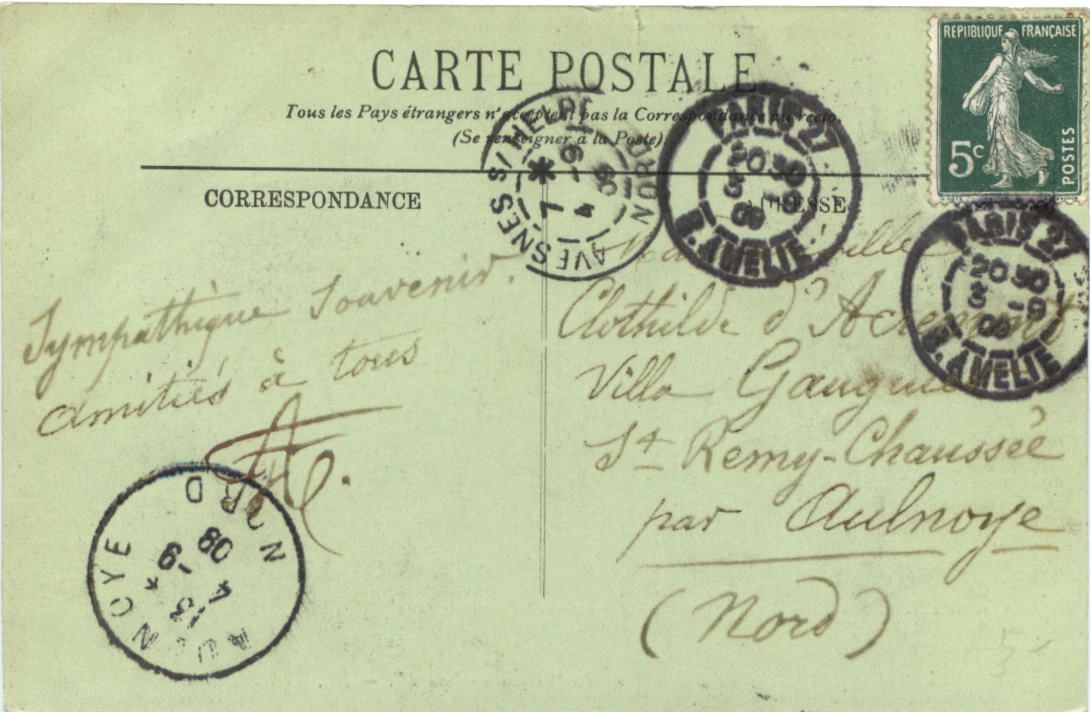 CARTE POSTALE
Tous les Pays étrangers n'acceptent pas la Correspondance au recto.
(Se renseigner à la Poste).
CORRESPONDANCE
ADRESSE
REPUBLIQUE FRANÇAISE
5c
POSTES
PARIS 27
20 30
3 - 9
09
R. AMELIE
PARIS 27
20 30
3 - 9
09
R. AMELIE
AVESNES S/ HELPE
NORD
Sympathique Souvenir.
Amitiés à tous
Clothilde d'
Villa
St Remy-Chaussée
par Aulnoye
(Nord)
AULNOYE
NORD
13
4 - 9
09